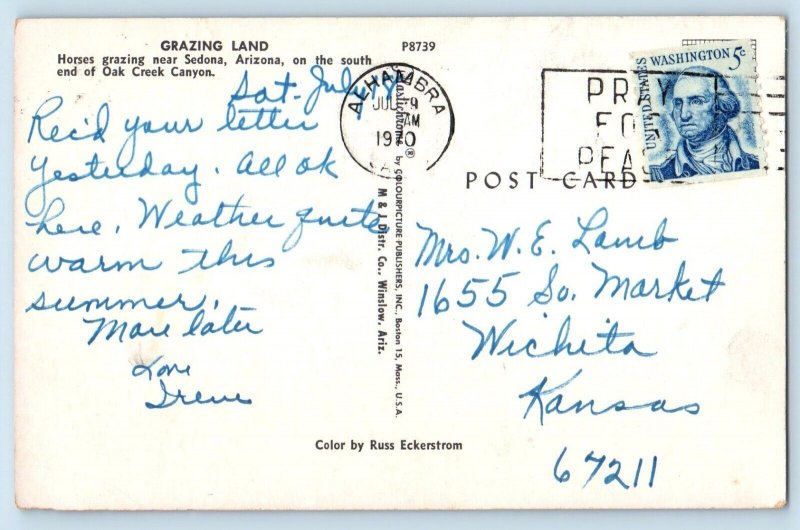 GRAZING LAND
Horses grazing near Sedona, Arizona, on the south
end of Oak Creek Canyon.
P8739
Sat. July 18
Rec'd your letter
yesterday. All ok
here. Weather quite
warm this
summer.
More later
Love
Irene
Plastichrome ® by COLOURPICTURE PUBLISHERS, INC., Boston 15, Mass., U.S.A.
M & J Distr. Co., Winslow, Ariz.
Color by Russ Eckerstrom
ALHAMBRA
JUL
AM
1970
PRAY
FOR
PEACE
UNITED STATES
WASHINGTON 5c
POST CARD
Mrs. W. E. Lamb
1655 So. Market
Wichita
Kansas
67211